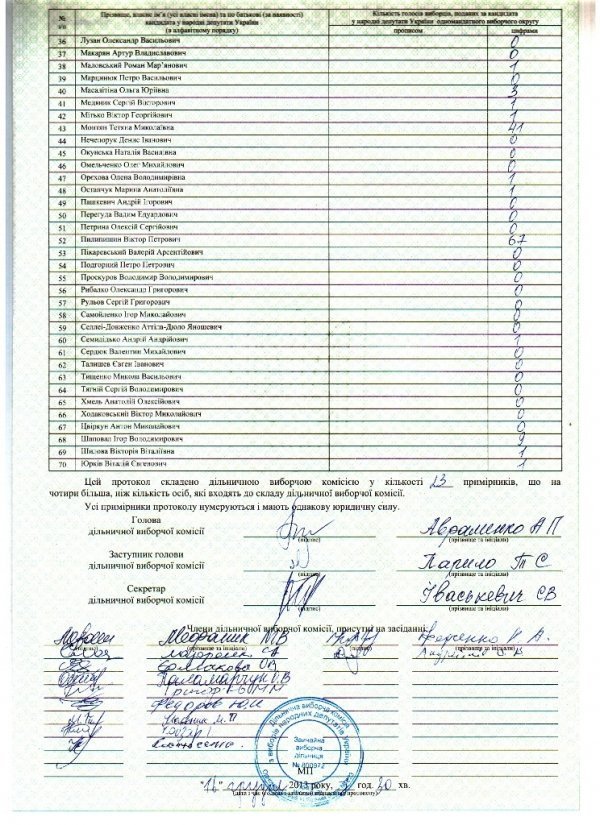 № з/п
Прізвище, власне ім'я (усі власні імена) та по батькові (за наявності)
кандидата у народні депутати України
(в алфавітному порядку)
Кількість голосів виборців, поданих за кандидата
у народні депутати України одномандатного виборчого округу
прописом цифрами
36 Лузан Олександр Васильович 0
37 Макарян Артур Владиславович 0
38 Маловський Роман Мар'янович 1
39 Марцинюк Петро Васильович 0
40 Масалітіна Ольга Юріївна 3
41 Медяник Сергій Вікторович 1
42 Мітько Віктор Георгійович 1
43 Монтян Тетяна Миколаївна 41
44 Нечепорук Денис Іванович 0
45 Окунська Наталія Василівна 0
46 Омельченко Олег Михайлович 0
47 Орехова Олена Володимирівна 1
48 Остапчук Марина Анатоліївна 1
49 Пашкевич Андрій Ігорович 0
50 Перегуда Вадим Едуардович 0
51 Петрина Олексій Сергійович 0
52 Пилипишин Віктор Петрович 67
53 Пікаревський Валерій Арсентійович 0
54 Подгорний Петро Петрович 0
55 Проскуров Володимир Володимирович 0
56 Рибалко Олександр Григорович 0
57 Рульов Сергій Григорович 0
58 Самойленко Ігор Миколайович 0
59 Селлеі-Довженко Аттіла-Дюло Яношевич 0
60 Семидідько Андрій Андрійович 1
61 Сердюк Валентин Михайлович 0
62 Талишев Євген Іванович 0
63 Тищенко Микола Васильович 0
64 Тягній Сергій Володимирович 0
65 Хмель Анатолій Олексійович 0
66 Ходаковський Віктор Миколайович 0
67 Цвіркун Антон Миколайович 0
68 Шаповал Ігор Володимирович 2
69 Шилова Вікторія Віталіївна 1
70 Юрків Віталій Євгенович 1
Цей протокол складено дільничною виборчою комісією у кількості 23 примірників, що на
чотири більша, ніж кількість осіб, які входять до складу дільничної виборчої комісії.
Усі примірники протоколу нумеруються і мають однакову юридичну силу.
Голова
дільничної виборчої комісії Авраменко А П
(підпис) (прізвище та ініціали)
Заступник голови
дільничної виборчої комісії Т С
(підпис) (прізвище та ініціали)
Секретар
дільничної виборчої комісії Іваськевич СВ
(підпис) (прізвище та ініціали)
Члени дільничної виборчої комісії, присутні на засіданні:
Пономарчук О.В
Федоров Ю.И
Дільнична виборча комісія
з виборів народних депутатів України
Звичайна
виборча
дільниця
МП
грудня 2013 року, год. 20 хв.